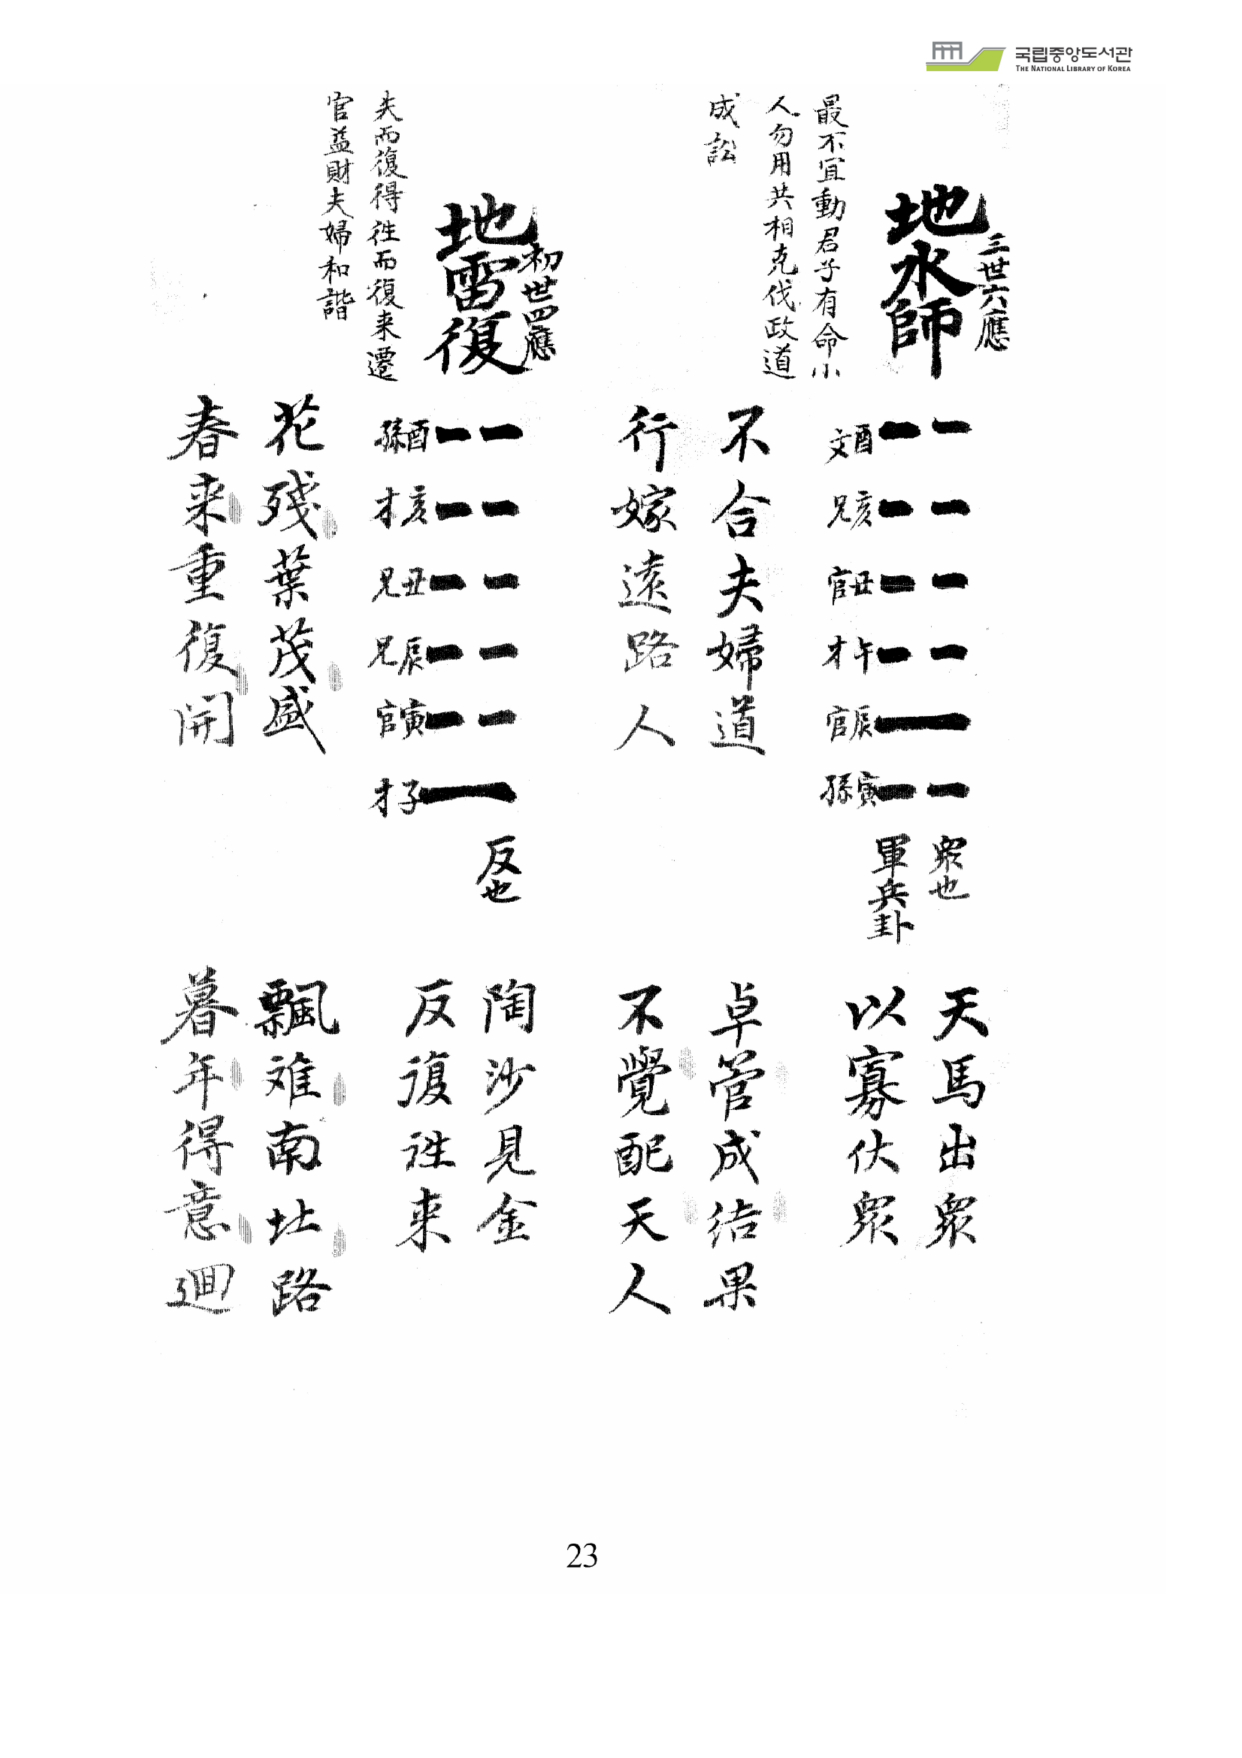 국립중앙도서관
THE NATIONAL LIBRARY OF KOREA
地水師
三世六應
最不宜動君子有命小
人勿用共相克伐政道
成訟
文酉
兄亥
官丑
才午
官辰
孫寅
衆也
軍兵卦
不合夫婦道
行嫁遠路人
天馬出衆
以寡伏衆
卓管成结果
不覺配天人
地雷復
初世四應
失而復得往而復来遷
官益財夫婦和諧
孫酉
才亥
兄丑
兄辰
官寅
才子
反也
花残葉茂盛
春来重復開
陶沙見金
反復往来
飄难南北路
暮年得意廻
23